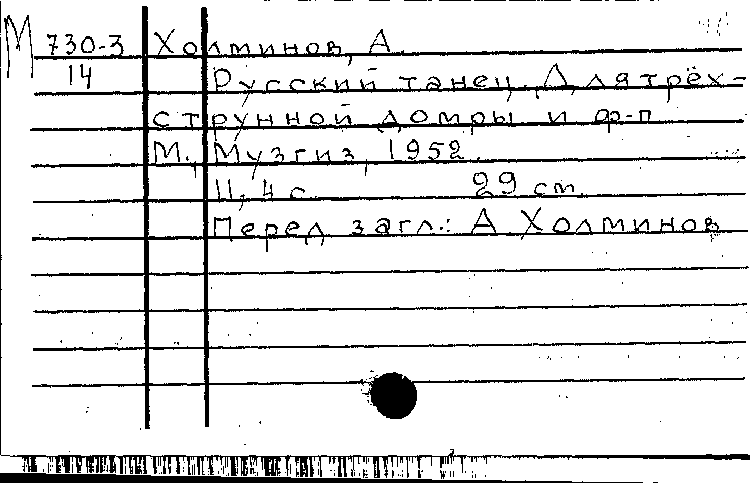 М 730-3 Холминов, А.
14 Русский танец. Для трёх-
струнной домры и ф-п
М., Музгиз, 1952.
11, 4 с. 29 см.
Перед загл.: А Холминов